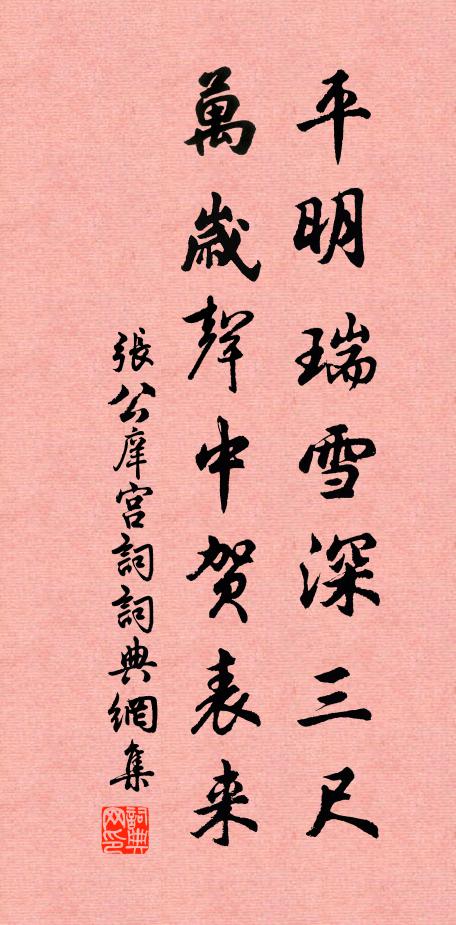 平明瑞雪深三尺
萬歲聲中賀表来
張公庠宫詞詞典網集
詞典网印